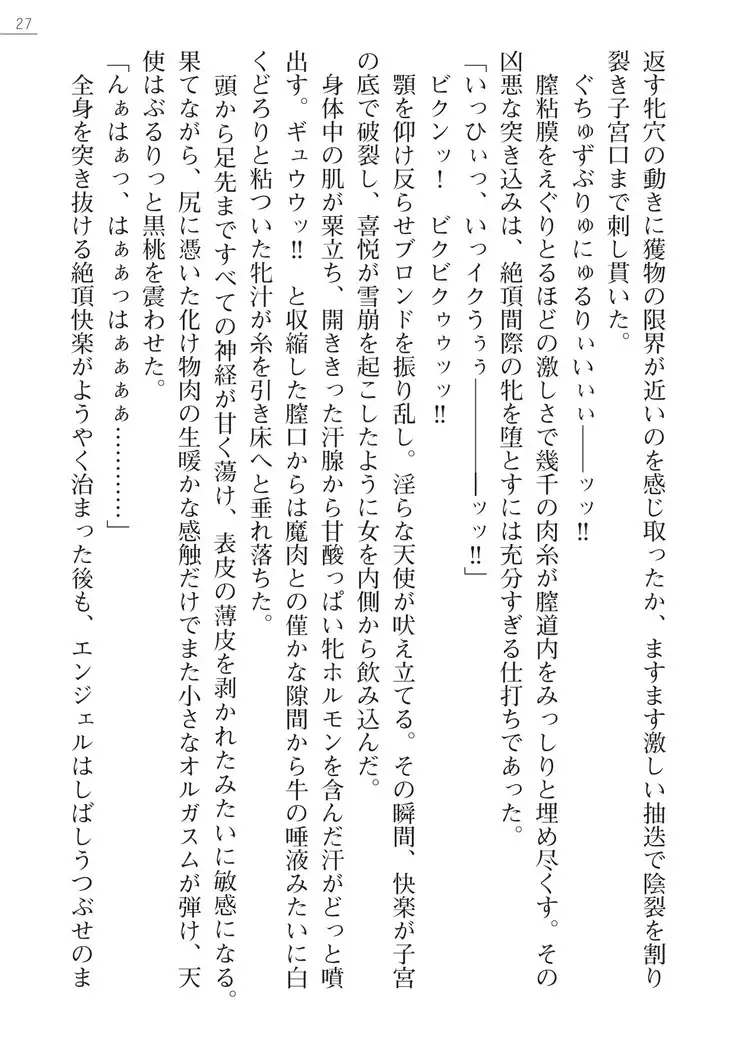 27
返す牝穴の動きに獲物の限界が近いのを感じ取ったか、ますます激しい抽迭で陰裂を割り
裂き子宮口まで刺し貫いた。
ぐちゅずぶりゅにゅるりぃいぃぃ――ッッ‼
膣粘膜をえぐりとるほどの激しさで幾千の肉糸が膣道内をみっしりと埋め尽くす。その
凶悪な突き込みは、絶頂間際の牝を堕とすには充分すぎる仕打ちであった。
「いっひぃっ、いっイクうぅぅ――――――ッッ‼」
ビクンッ！　ビクビクゥゥッッ‼
顎を仰け反らせブロンドを振り乱し。淫らな天使が吠え立てる。その瞬間、快楽が子宮
の底で破裂し、喜悦が雪崩を起こしたように女を内側から飲み込んだ。
身体中の肌が粟立ち、開ききった汗腺から甘酸っぱい牝ホルモンを含んだ汗がどっと噴
出す。ギュウウッ‼　と収縮した膣口からは魔肉との僅かな隙間から牛の唾液みたいに白
くどろりと粘ついた牝汁が糸を引き床へと垂れ落ちた。
頭から足先まですべての神経が甘く蕩け、表皮の薄皮を剥かれたみたいに敏感になる。
果てながら、尻に憑いた化け物肉の生暖かな感触だけでまた小さなオルガスムが弾け、天
使はぶるりっと黒桃を震わせた。
「んぁはぁっ、はぁぁっはぁぁぁぁ…………」
全身を突き抜ける絶頂快楽がようやく治まった後も、エンジェルはしばしうつぶせのま